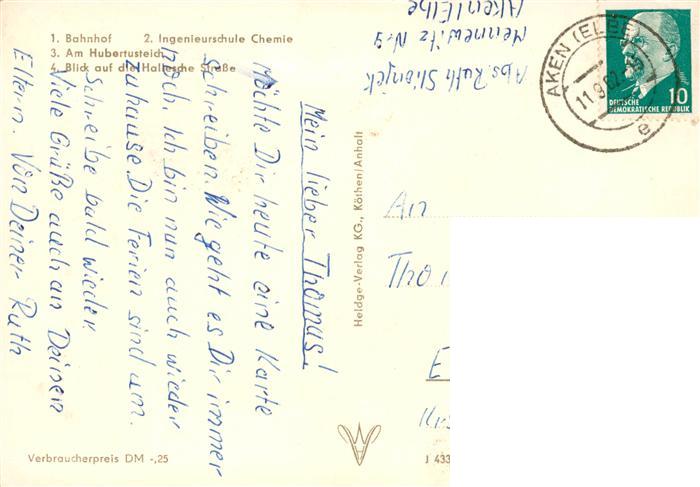 1. Bahnhof 2. Ingenieurschule Chemie
3. Am Hubertusteich
4. Blick auf die Hallesche Straße
Mein lieber Thomas!
Möchte Dir heute eine Karte
schreiben. Wie geht es Dir immer
noch. Ich bin nun auch wieder
zuhause. Die Ferien sind um.
Schreibe bald wieder.
Viele Grüße auch an Deinen
Eltern. Von Deiner Ruth
Verbraucherpreis DM -,25
Heldge-Verlag KG., Köthen/Anhalt
Abs. Ruth
Mennewitz Nr. 9
Aken/Elbe
AKEN (ELBE)
11.9.62
e
10
DEUTSCHE
DEMOKRATISCHE REPUBLIK
An
Tho
E
Krs
J 433